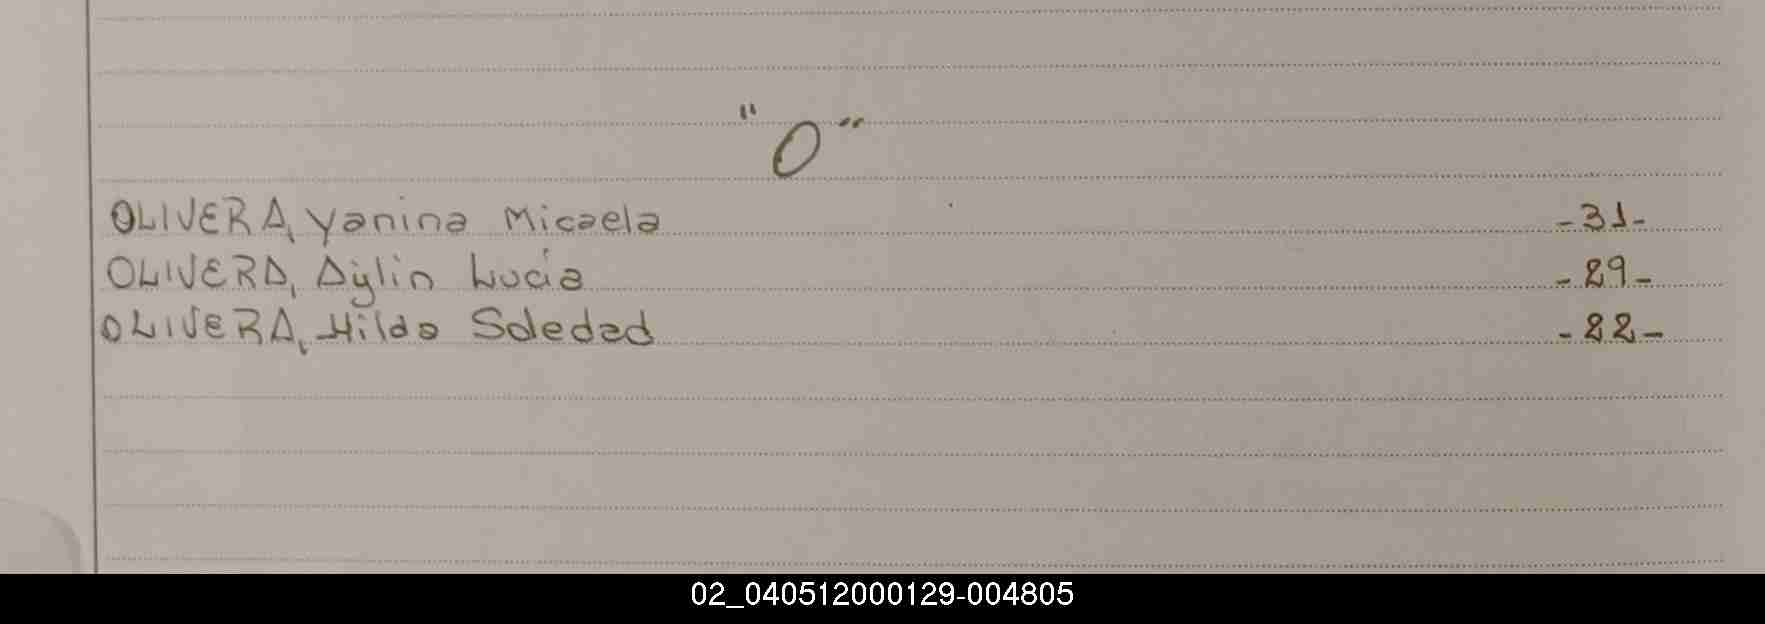 "O"
OLIVERA, Yanina Micaela -31-
OLIVERA, Aylin Lucia -29-
OLIVERA, Hilda Soledad -22-
02_040512000129-004805